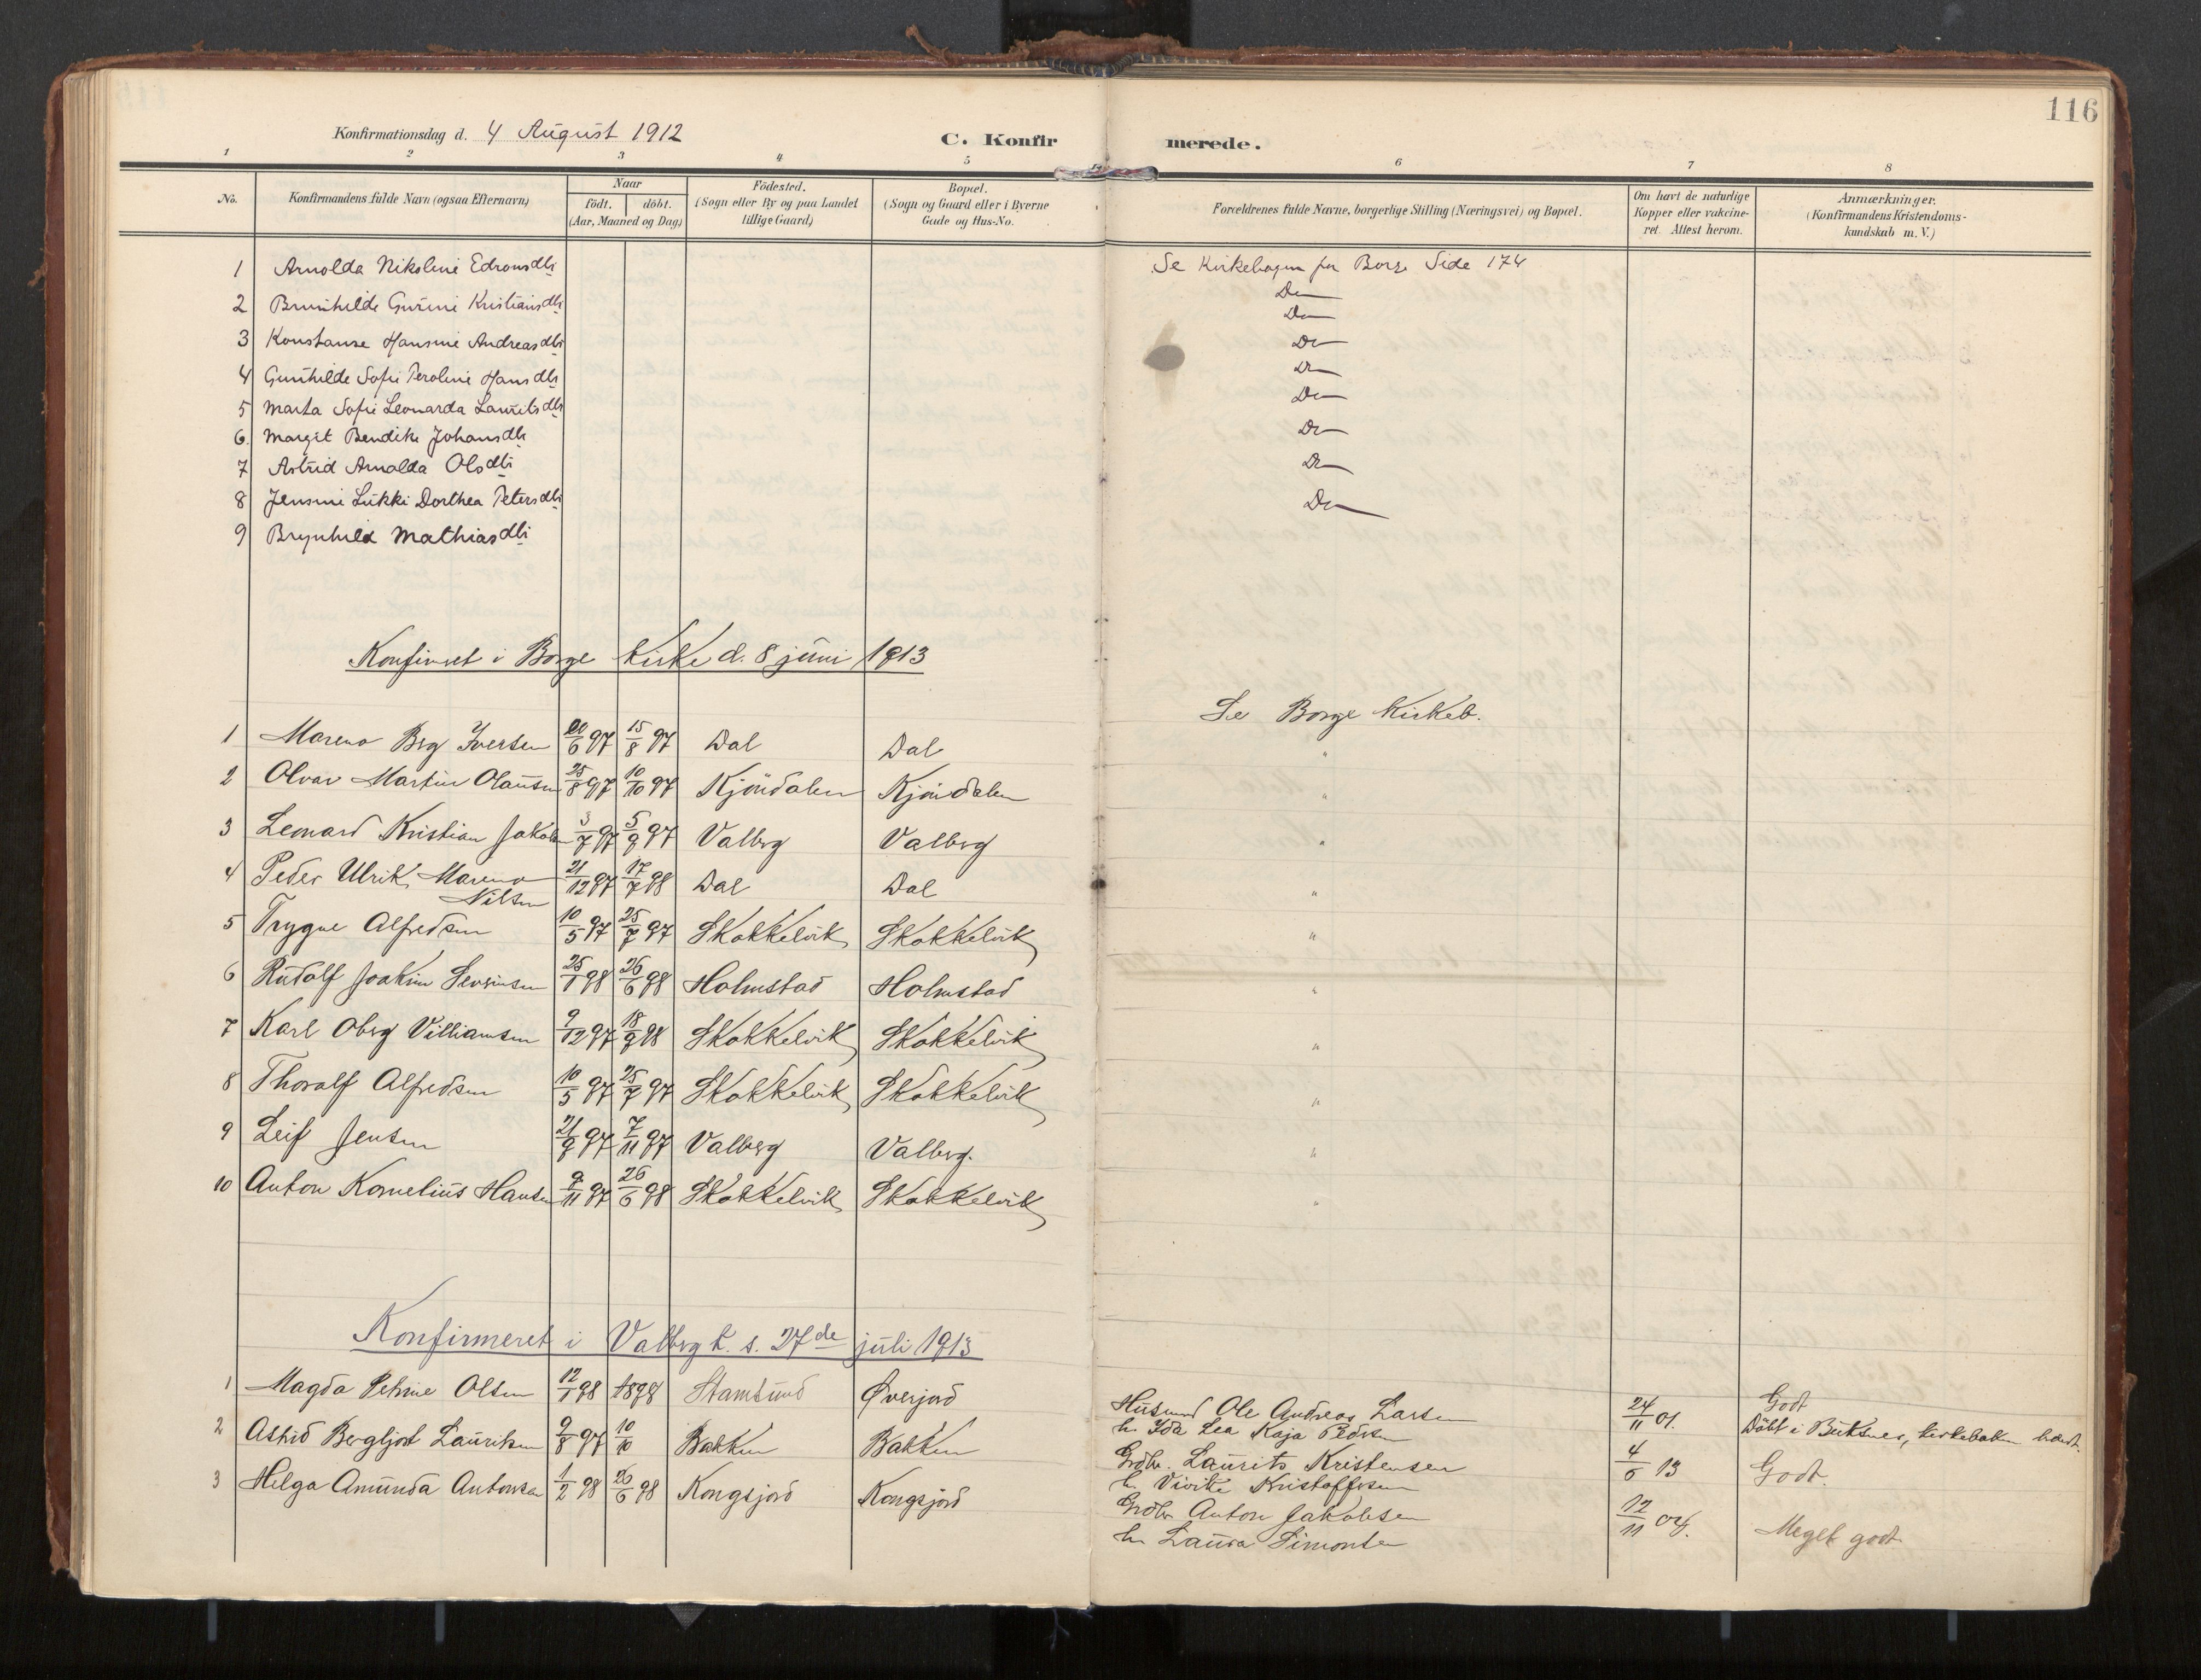 116
Konfirmationsdag d. 4 August 1912
C. Konfirmerede.
1 2 3 4 5 6 7 8
No.
Konfirmandens fulde Navn (ogsaa Efternavn)
Naar
födt. döbt.
(Aar, Maaned og Dag)
Födested.
(Sogn eller By og paa Landet
tillige Gaard)
Bopæl.
(Sogn og Gaard eller i Byerne
Gade og Hus-No.
Forældrenes fulde Navne, borgerlige Stilling (Næringsvei) og Bopæl.
Om havt de naturlige
Kopper eller vakcine-
ret. Attest herom.
Anmærkninger.
(Konfirmandens Kristendoms-
kundskab m. V.)
1 Arnolda Nikoline Edvardsdtr Se Kirkebogen for Borge Side 174
2 Brunhilde Gurine Kristiansdtr Do
3 Konstanse Hansine Andreasdtr Do
4 Gunhilde Sofie Peroline Hansdtr Do
5 Marta Sofie Leonarda Lauritsdtr Do
6. Margit Bendikte Johansdtr Do
7 Astrid Arnolda Olsdtr Do
8 Jensine Lukki Dorthea Petersdtr Do
9 Brynhild Mathiasdtr Do
Konfirmret i Borge Kirke d. 8 juni 1913
Se Borge Kirkeb.
1 Moreno Berg Iversen 20/6 97 15/8 97 Dal Dal "
2 Olvar Martin Olausen 25/8 97 10/10 97 Kjöndalen Kjöndalen "
3 Leonard Kristian Jakobsen 3/7 97 5/9 97 Valberg Valberg "
4 Peder Ulrik Moreno Nilsen 21/12 97 17/7 98 Dal Dal "
5 Trygve Alfredsen 10/5 97 25/7 97 Skokkelvik Skokkelvik "
6 Rudolf Joakim Sevrinsen 25/1 98 26/6 98 Holmstad Holmstad "
7 Karl Oberg Villiamsen 9/12 97 18/9 98 Skokkelvik Skokkelvik "
8 Thoralf Alfredsen 10/5 97 25/7 97 Skokkelvik Skokkelvik "
9 Leif Jensen 21/9 97 7/11 97 Valberg Valberg. "
10 Anton Kornelius Hansen 9/11 97 26/6 98 Skokkelvik Skokkelvik "
Konfirmeret i Valberg k. s. 27de juli 1913
1 Magda Petrine Olsen 12/1 98 1898 Stamsund Øverjord Husmd Ole Andreas Larsen 24/11 01. Godt
h. Ida Lea Kaja Pedersen Döbt i Buksnes, kirkeboken brændt.
2 Astrid Bergljot Lauritsen 9/8 97 10/10 Bakken Bakken Grdbr. Laurits Kristensen 4/6 13 Godt.
h. Vivike Kristoffersen
3 Helga Amunda Antonsen 1/2 98 26/6 98 Kongsjord Kongsjord Grdbr Anton Jakobsen 12/11 04. Meget godt
h. Laura Simonsen